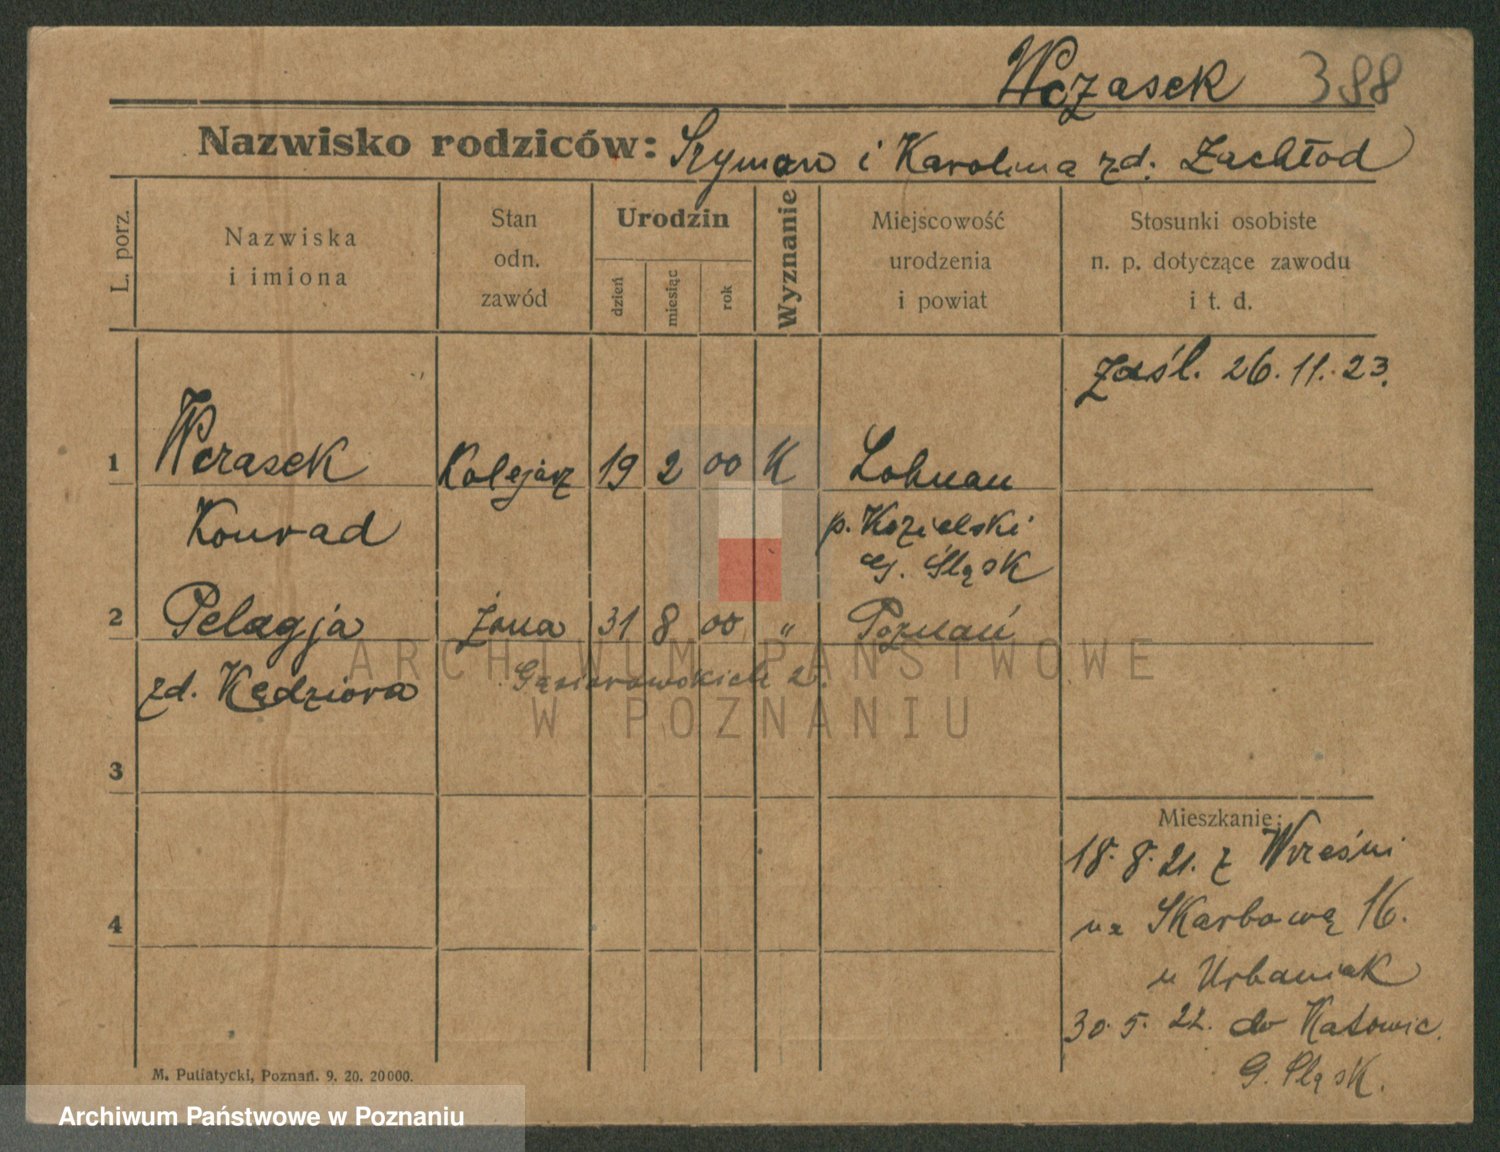 Wczasek 388
Nazwisko rodziców: Szyman i Karolina zd: Zachłod
L. porz.
Nazwiska i imiona
Stan odn. zawód
Urodzin
dzień
miesiąc
rok
Wyznanie
Miejscowość urodzenia i powiat
Stosunki osobiste n. p. dotyczące zawodu i t. d.
zaśl. 26.11.23.
1 Wczasek Kolejarz 19 2 00 K Lohnau
Konrad p. Kozielski
G. Śląsk
2 Pelagja żona 31 8 00 " Poznań
zd. Kędziora Gąsiorowskich 2.
ARCHIWUM PAŃSTWOWE
W POZNANIU
3
4
Mieszkanie:
18.8.21. z Wrześni
na Skarbową 16.
u Urbaniak
30.5.22. do Katowic.
G. Śląsk.
M. Putiatycki, Poznań. 9. 20. 20000.
Archiwum Państwowe w Poznaniu